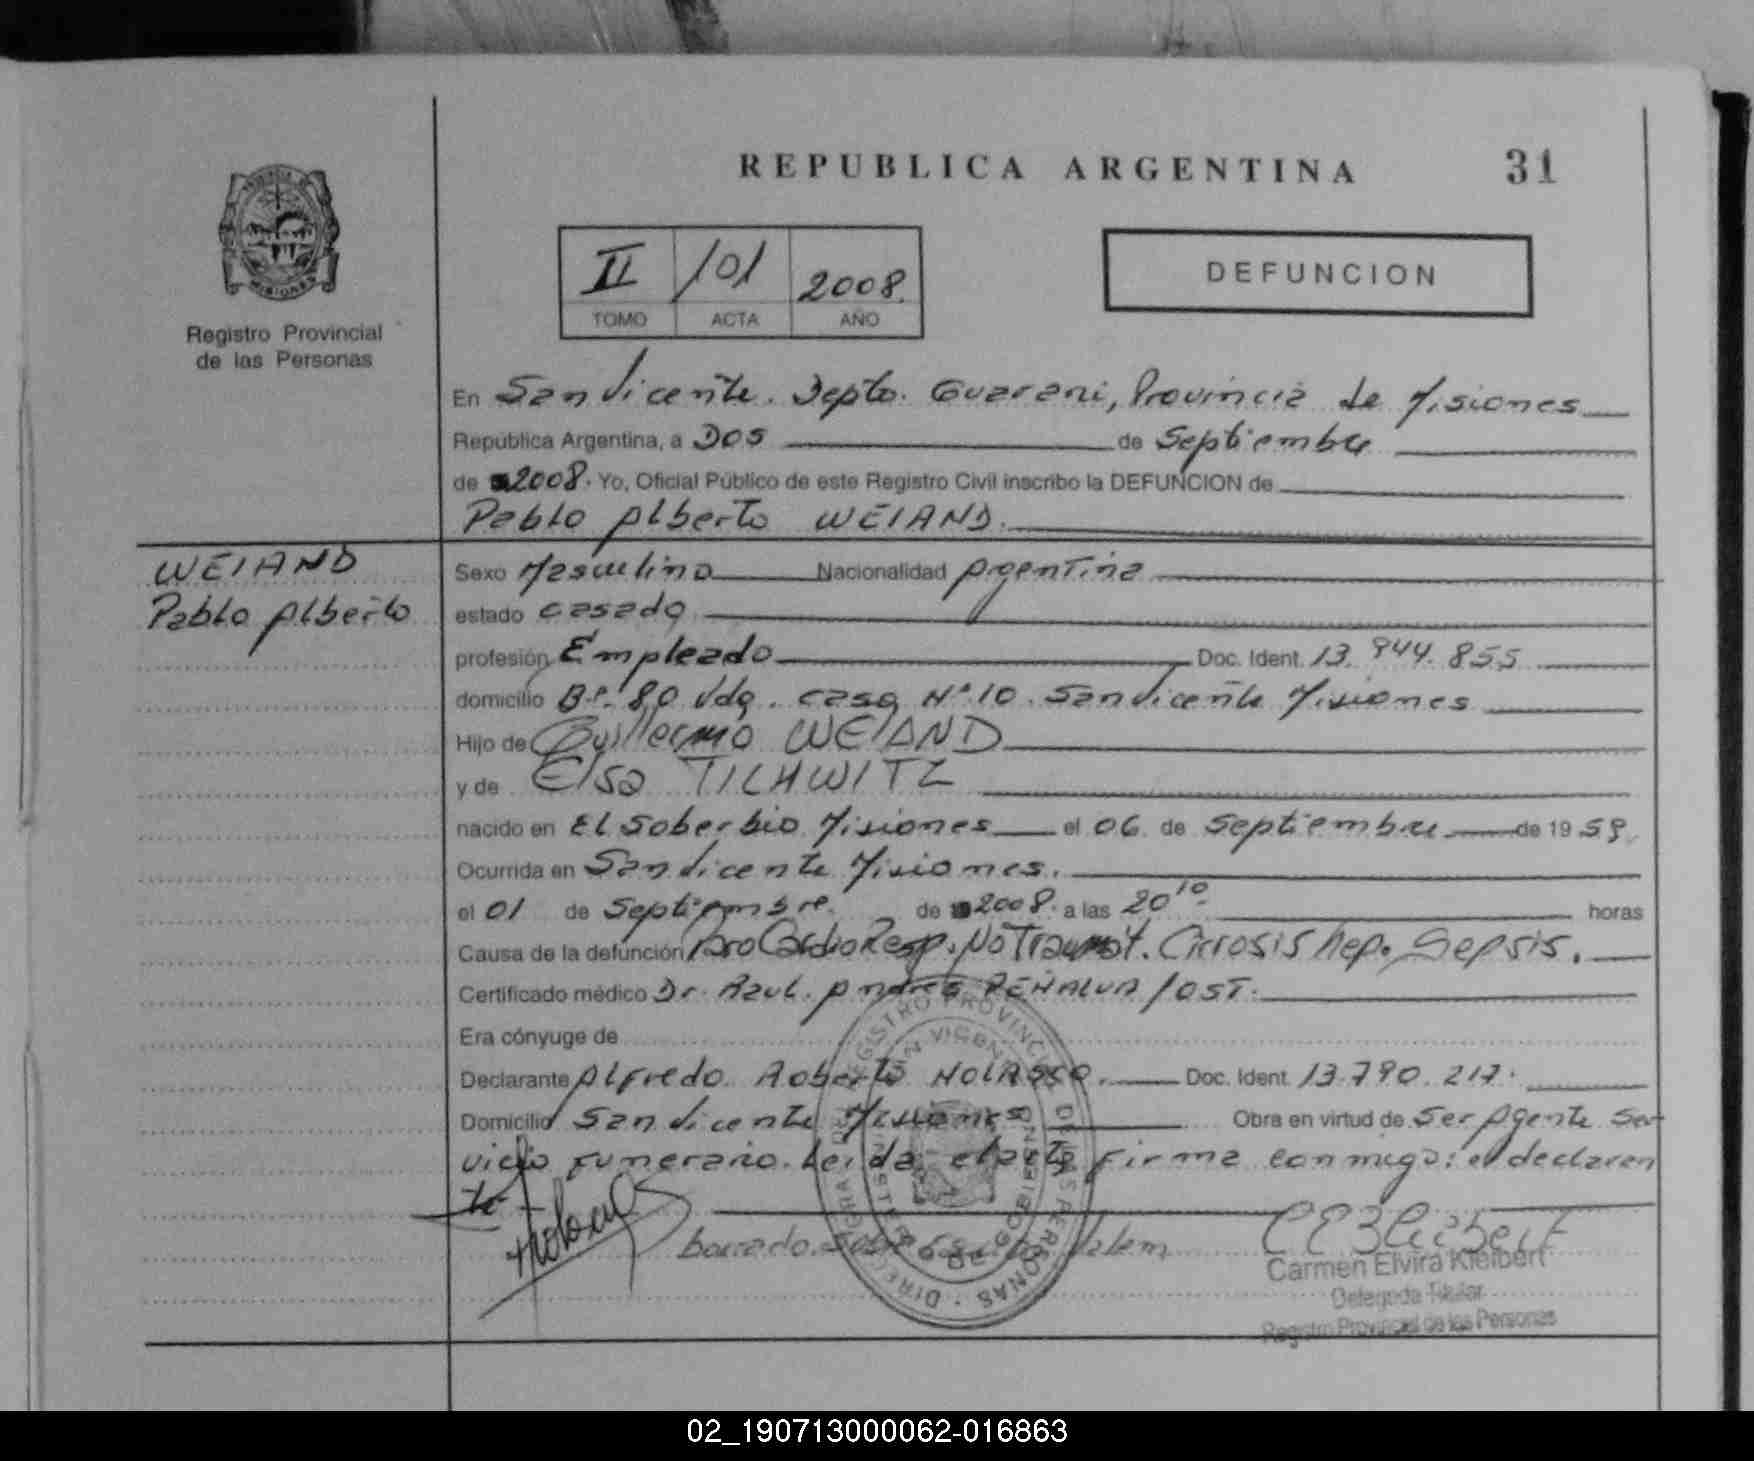 REPUBLICA ARGENTINA 31
Registro Provincial
de las Personas
II 101 2008.
TOMO ACTA AÑO
DEFUNCION
En San Vicente. Depto. Guarani, Provincia de Misiones
República Argentina, a Dos de Septiembre
de 2008. Yo, Oficial Público de este Registro Civil inscribo la DEFUNCION de
Pablo Alberto WEIAND.
WEIAND
Pablo Alberto
Sexo Masculino Nacionalidad Argentina
estado casado
profesión Empleado Doc. Ident. 13.944.855
domicilio B.º 80 Vdas. casa Nº 10. San Vicente Misiones
Hijo de Guillermo WEIAND
y de Elsa TILHWITZ
nacido en El Soberbio Misiones el 06 de Septiembre de 1959
Ocurrida en San Vicente Misiones.
el 01 de Septiembre de 2008. a las 20 10 horas
Causa de la defunción Paro Cardio Resp. No Traumát. Cirrosis hep. Sepsis.
Certificado médico Dr. Azul. Andres PEÑALVA /OST.
Era cónyuge de
Declarante Alfredo Roberto NOLASCO. Doc. Ident. 13.790.217.
Domicilio San Vicente Misiones Obra en virtud de Ser Agente Ser
vicio Funerario. Leida el acta firma conmigo: el declaran
te
borrado
Carmen Elvira Kleibert
Delegada Titular
Registro Provincial de las Personas
02_190713000062-016863